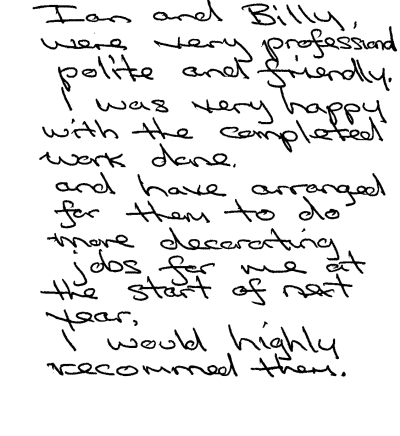 Ian and Billy,
were very professional
polite and friendly.
I was very happy
with the completed
work done.
and have arranged
for them to do
more decorating
jobs for me at
the start of next
year.
I would highly
recommed them.